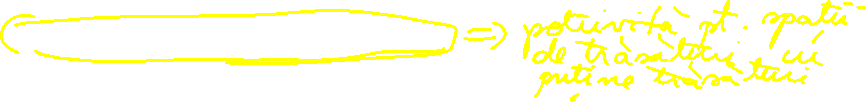 => potrivită pt. spații
de trăsături cu
puține trăsături